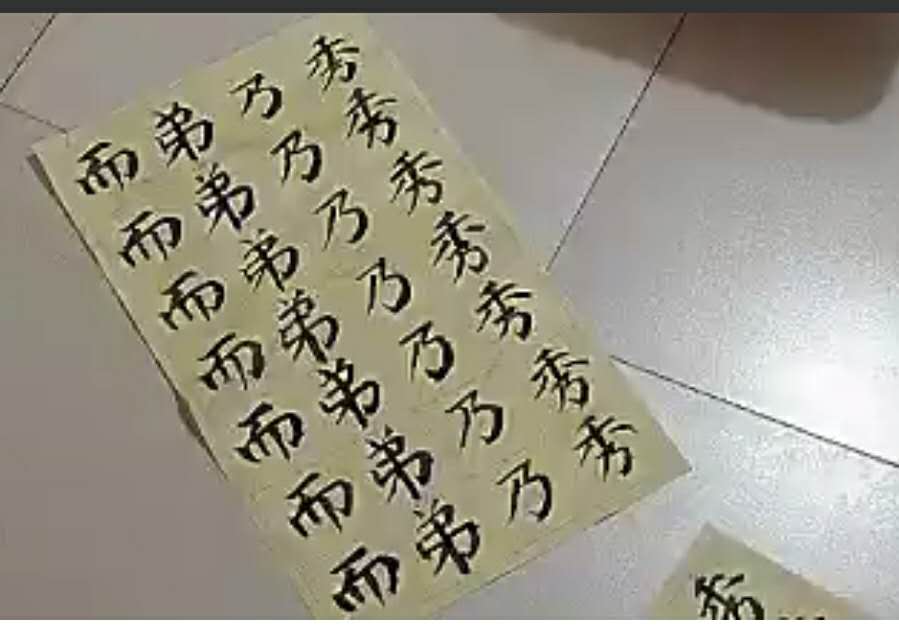 秀秀秀秀秀秀秀
乃乃乃乃乃乃乃
弟弟弟弟弟弟弟
而而而而而而而